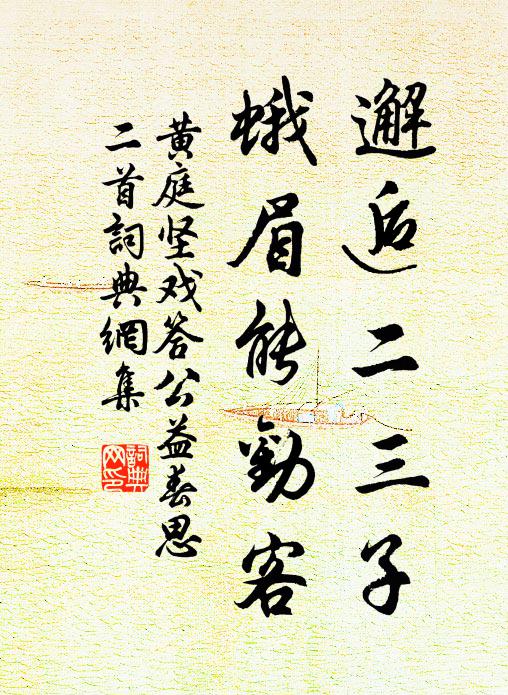 邂逅二三子
蛾眉能勸客
黄庭坚戏答公益春思
二首詞典網集
詞典网印